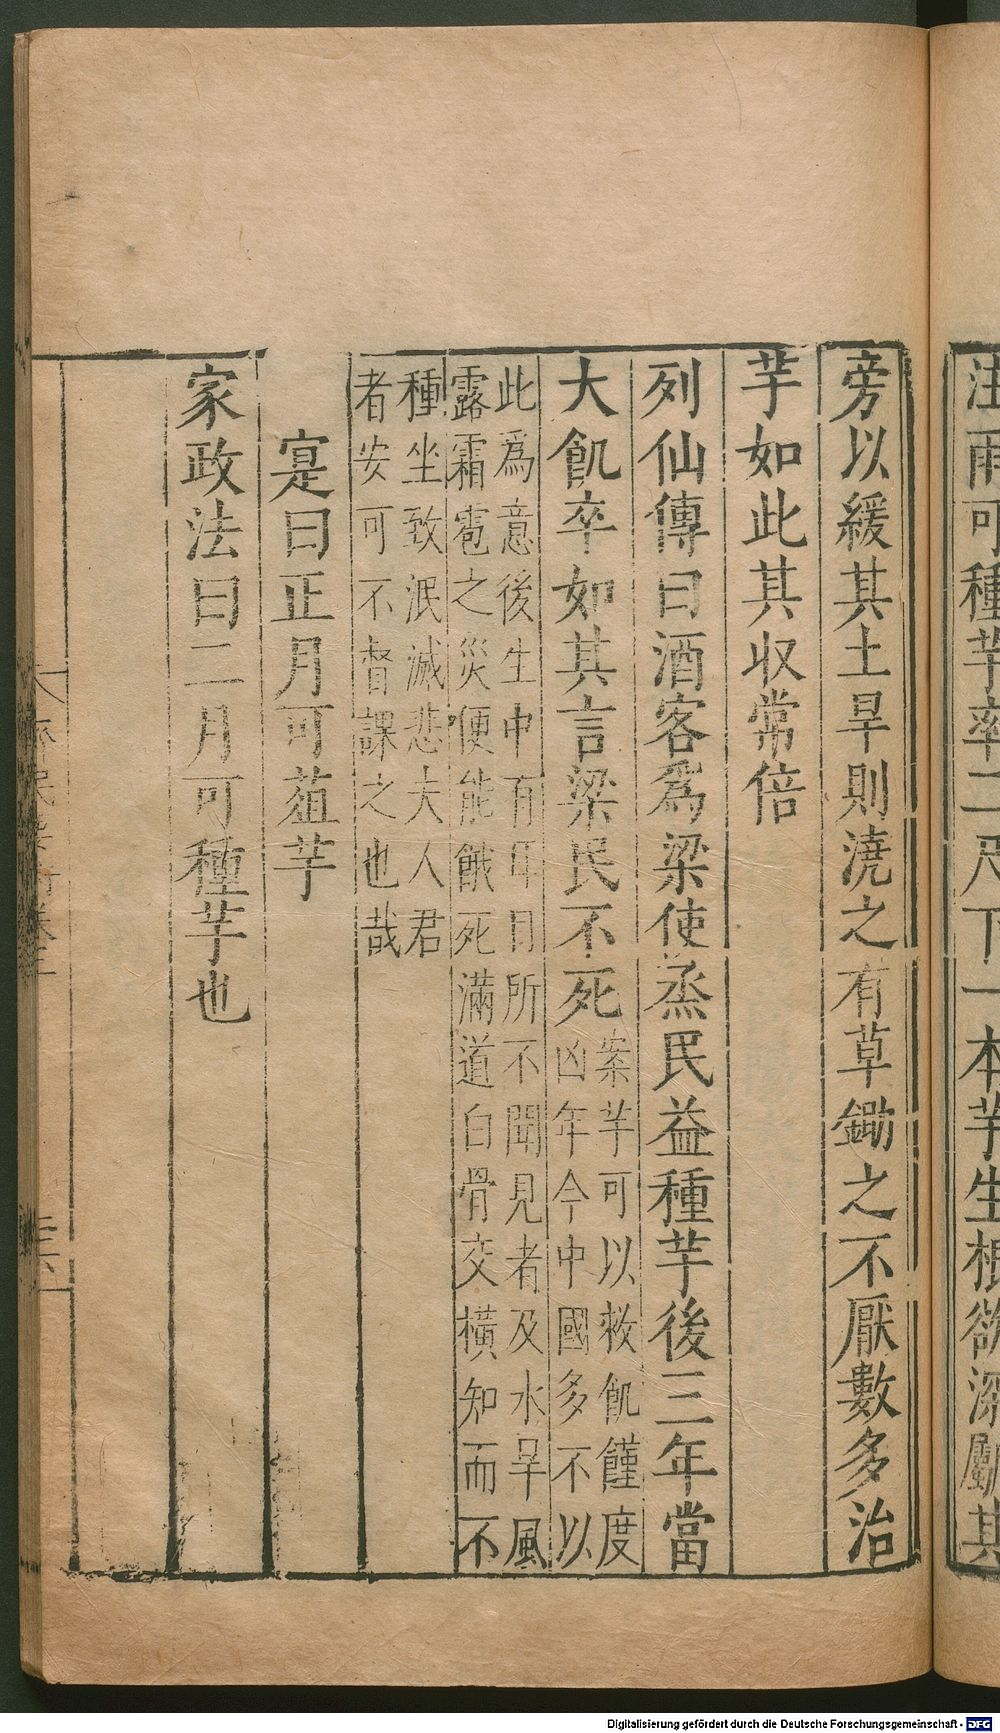 注雨可種芋率二尺下一本芋生根欲深劚其
旁以緩其土旱則澆之有草鋤之不厭數多治
芋如此其收常倍
列仙傳曰酒客為梁使烝民益種芋後三年當
大飢卒如其言梁民不死
案芋可以救飢饉度
凶年今中國多不以
此為意後生中有耳目所不聞見者及水旱風
露霜雹之災便能餓死滿道白骨交橫知而不
種坐致泯滅悲大人君
者安可不督課之也哉
寔曰正月可葅芋
家政法曰二月可種芋也
民要術卷三
Digitalisierung gefördert durch die Deutsche Forschungsgemeinschaft - DFG